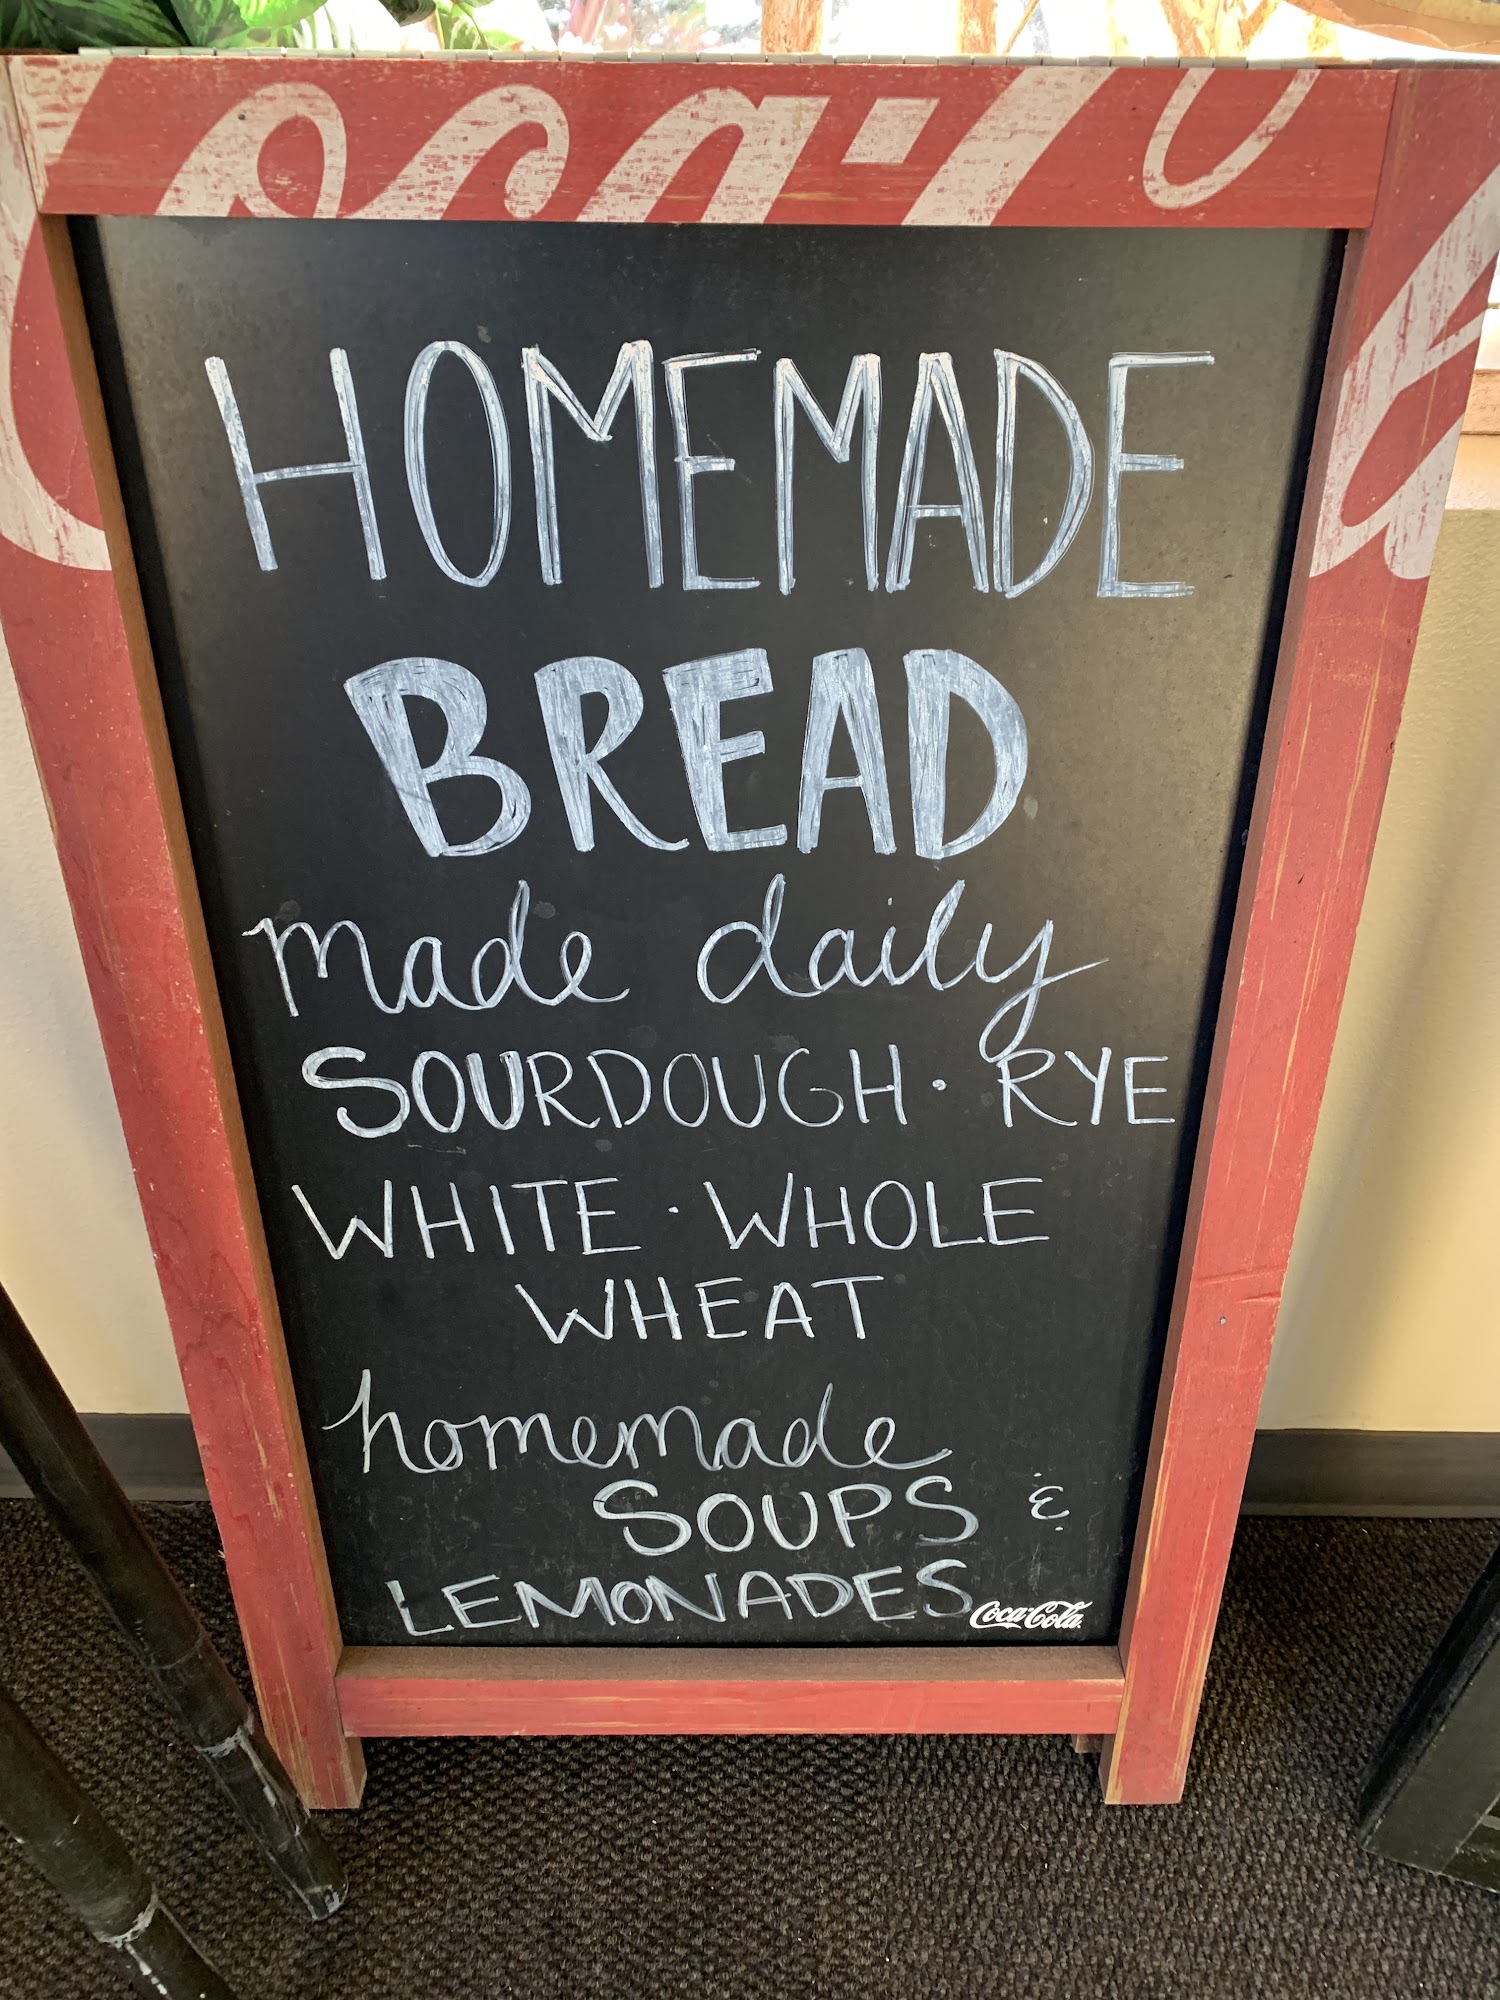 Coca-Cola
HOMEMADE
BREAD
made daily
SOURDOUGH · RYE
WHITE · WHOLE
WHEAT
homemade
SOUPS &
LEMONADES
Coca-Cola